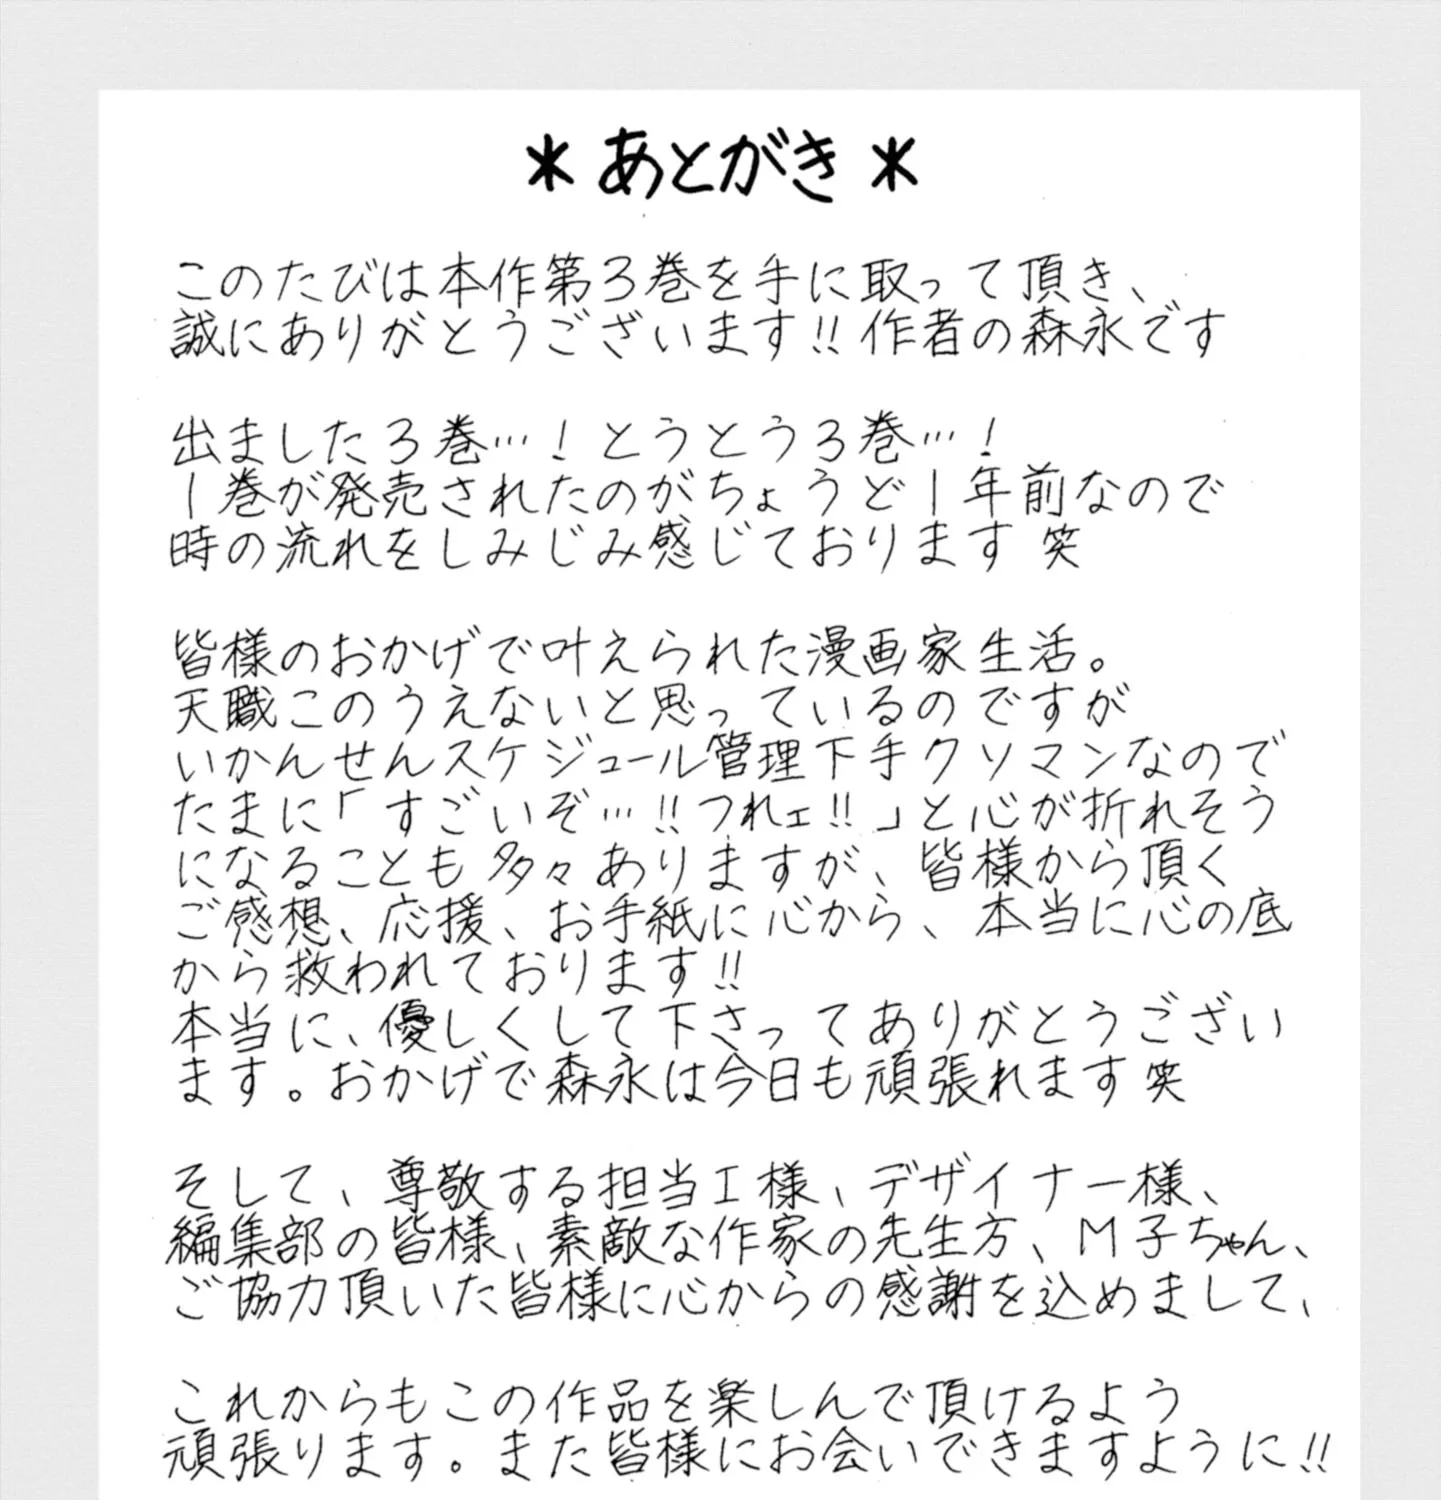 ＊あとがき＊
このたびは本作第3巻を手に取って頂き、
誠にありがとうございます!!作者の森永です
出ました3巻…！とうとう3巻…！
1巻が発売されたのがちょうど1年前なので
時の流れをしみじみ感じております 笑
皆様のおかげで叶えられた漫画家生活。
天職このうえないと思っているのですが
いかんせんスケジュール管理下手クソマンなので
たまに「すごいぞ…!!つれェ!!」と心が折れそう
になることも多々ありますが、皆様から頂く
ご感想、応援、お手紙に心から、本当に心の底
から救われております!!
本当に、優しくして下さってありがとうござい
ます。おかげで森永は今日も頑張れます 笑
そして、尊敬する担当I様、デザイナー様、
編集部の皆様、素敵な作家の先生方、M子ちゃん、
ご協力頂いた皆様に心からの感謝を込めまして、
これからもこの作品を楽しんで頂けるよう
頑張ります。また皆様にお会いできますように!!